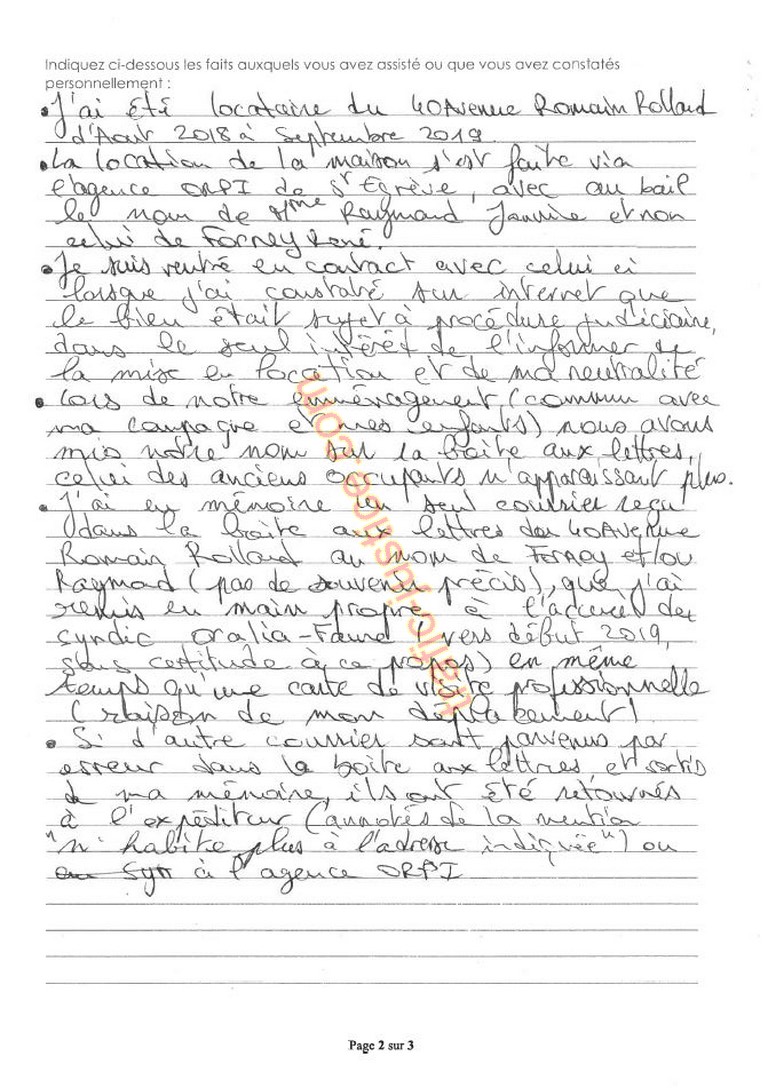 Indiquez ci-dessous les faits auxquels vous avez assisté ou que vous avez constatés
personnellement :
• J'ai été locataire du 40 Avenue Romain Rolland
d'Aout 2018 à Septembre 2019.
• La location de la maison s'est faite via
l'agence ORPI de St Egrève, avec au bail
le nom de Mme Raymond Jannine et non
celui de Forney René.
• Je suis rentré en contact avec celui ci
lorsque j'ai constaté sur internet que
le bien était sujet à procédure judiciaire,
dans le seul intérêt de l'informer de
la mise en location et de ma neutralité
• Lors de notre emménagement (commun avec
ma compagne et mes enfants) nous avons
mis notre nom sur la boite aux lettres,
celui des anciens occupants n'apparaissant plus.
• J'ai en mémoire un seul courrier reçu
dans la boite aux lettres du 40 Avenue
Romain Rolland au nom de Forney et/ou
Raymond (pas de souvenir précis), que j'ai
remis en main propre à l'accueil du
syndic Oralia-Favre (vers début 2019,
sans certitude à ce propos) en même
temps qu'une carte de visite professionnelle
(raison de mon déplacement)
• Si d'autre courrier sont parvenus par
erreur dans la boite aux lettres, et sortis
de ma mémoire, ils ont été retournés
à l'expéditeur (annotés de la mention
"n'habite plus à l'adresse indiquée") ou
à l'agence ORPI
negific-justice.com
Page 2 sur 3